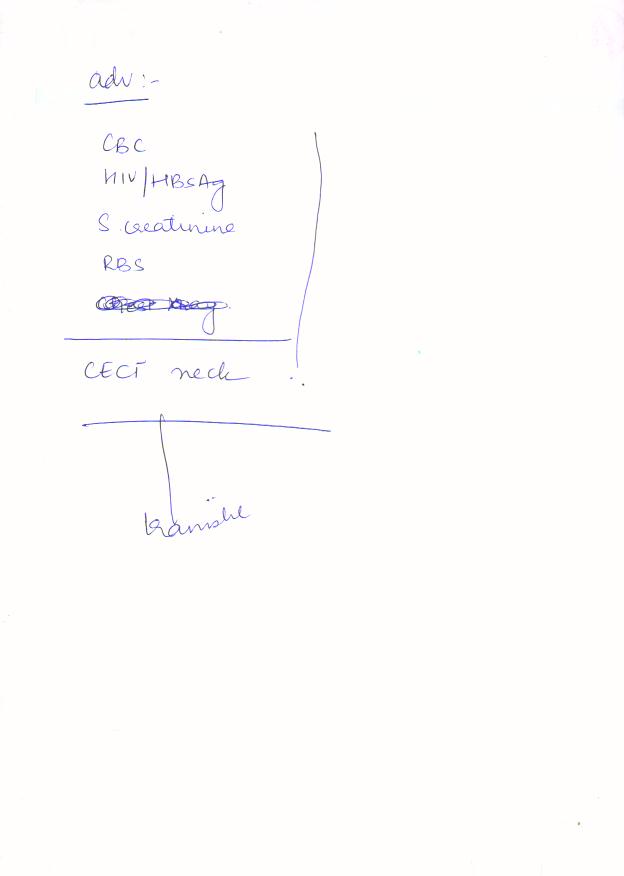 adv :-
CBC
HIV/HBsAg
S. creatinine
RBS
CECT neck